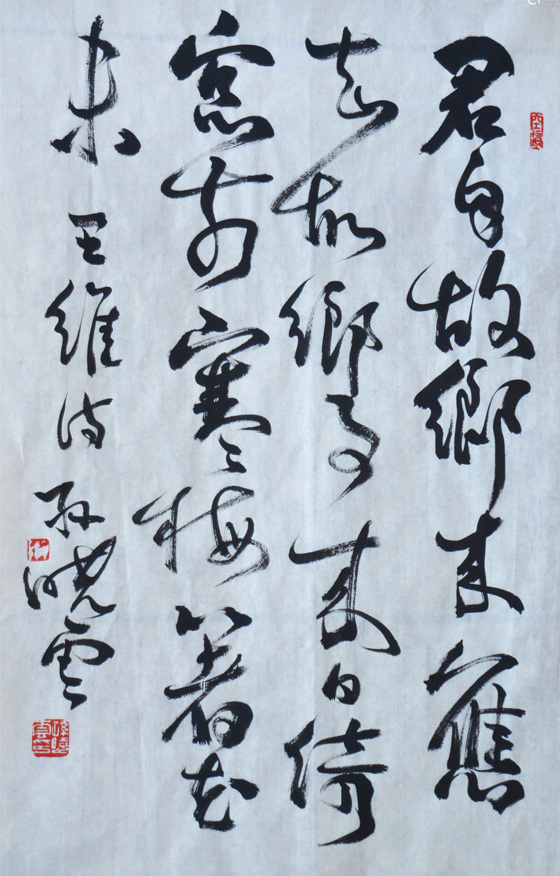 君自故鄉來應
知故鄉事來日綺
窓前寒梅著花
未 王維诗 孙晓云